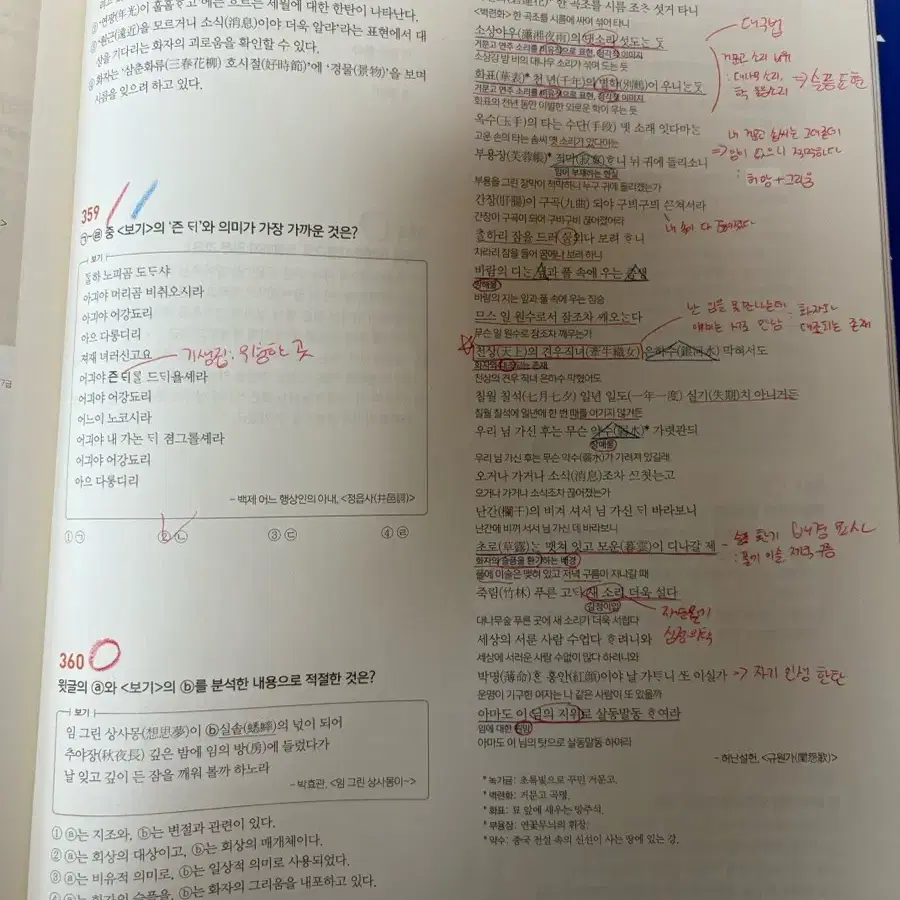 ② '연광(年光)이 훌훌하고'에는 흐르는 세월에 대한 한탄이 나타난다.
③ '원근(遠近)을 모르거니 소식(消息)이야 더욱 알랴'라는 표현에서 대
상을 기다리는 화자의 괴로움을 확인할 수 있다.
④ 화자는 '삼춘화류(三春花柳) 호시절(好時節)'에 '경물(景物)'을 보며
시름을 잊으려 하고 있다.
359
㉠~㉣ 중 <보기>의 '즌 ᄃᆡ'와 의미가 가장 가까운 것은?
보기
ᄃᆞᆯ하 노피곰 도ᄃᆞ샤
어긔야 머리곰 비취오시라
어긔야 어강됴리
아으 다롱디리
져재 녀러신고요
어긔야 즌 ᄃᆡᄅᆞᆯ 드ᄃᆡ욜셰라
기생집: 위험한 곳
어긔야 어강됴리
어느이 노코시라
어긔야 내 가논 ᄃᆡ 졈그ᄅᆞᆯ셰라
어긔야 어강됴리
아으 다롱디리
- 백제 어느 행상인의 아내, <정읍사(井邑詞)>
① ㉠ ② ㉡ ③ ㉢ ④ ㉣
360
윗글의 ⓐ와 <보기>의 ⓑ를 분석한 내용으로 적절한 것은?
보기
임 그린 상사몽(想思夢)이 ⓑ실솔(蟋蟀)의 넋이 되어
추야장(秋夜長) 깊은 밤에 임의 방(房)에 들었다가
날 잊고 깊이 든 잠을 깨워 볼까 하노라
- 박효관, <임 그린 상사몽이~>
① ⓐ는 지조와, ⓑ는 변절과 관련이 있다.
② ⓐ는 회상의 대상이고, ⓑ는 회상의 매개체이다.
③ ⓐ는 비유적 의미로, ⓑ는 일상적 의미로 사용되었다.
④ ⓐ는 화자의 슬픔을, ⓑ는 화자의 그리움을 내포하고 있다.
한 곡조를 시름 조ᄎᆞ 섯거 타니
<벽련화> 한 곡조를 시름에 싸여 섞어 타니
소상야우(瀟湘夜雨)의 댓소리 섯도ᄂᆞᆫ ᄃᆞᆺ
거문고 연주 소리를 비유적으로 표현, 청각적 이미지
소상강 밤 비의 대나무 소리가 섞여 도는 듯
화표(華表)* 천 년(千年)의 별학(別鶴)이 우니ᄂᆞᆫ ᄃᆞᆺ
거문고 연주 소리를 비유적으로 표현, 청각적 이미지
화표의 천년 동안 이별한 외로운 학이 우는 듯
대구법
거문고 소리 비유
: 대나무 소리,
학 울음소리 ⇒ 슬픔 표현
옥수(玉手)의 타는 수단(手段) 녯 소래 잇다마ᄂᆞᆫ
고운 손의 타는 솜씨 옛 소리가 있다마는
부용장(芙蓉帳)* 적막(寂寞)ᄒᆞ니 뉘 귀에 들리소니
임이 부재하는 현실
부용을 그린 장막이 적막하니 누구 귀에 들리겠는가
내 거문고 솜씨는 그대론데
⇒ 임이 없으니 적막하다
: 허망+그리움
간장(肝腸)이 구곡(九曲) 되야 구븨구븨 ᄭᅳᆫ쳐서라
간장이 구곡이 되어 구비구비 끊어졌어라
내 속이 다 끊어졌다
ᄎᆞᆯ하리 잠을 드러 ᄭᅮᆷ의나 보려 ᄒᆞ니
차라리 잠을 들어 꿈에나 보려 하니
바람의 디ᄂᆞᆫ 닙과 풀 속에 우는 즘생
방해물
바람의 지는 잎과 풀 속에 우는 짐승
므스 일 원수로서 잠조차 ᄭᆡ오ᄂᆞᆫ다
무슨 일 원수로 잠조차 깨우는가
천상(天上)의 견우직녀(牽牛織女) 은하수(銀河水) 막혀서도
화자와 대조되는 존재
천상의 견우 직녀 은하수 막혔어도
난 임을 못 만나는데 : 화자와
얘네는 서로 만남 대조되는 존재
칠월 칠석(七月七夕) 일년 일도(一年一度) 실기(失期)치 아니거든
칠월 칠석에 일년에 한 번 때를 어기지 않거든
우리 님 가신 후는 무슨 약수(弱水)* 가렷관ᄃᆡ
장애물
우리 님 가신 후는 무슨 약수(弱水)가 가려져 있길래
오거나 가거나 소식(消息)조차 ᄭᅳ쳣는고
오거나 가거나 소식조차 끊어졌는가
난간(欄干)의 비겨 셔서 님 가신 ᄃᆡ 바라보니
난간에 비껴 서서 님 가신 데 바라보니
초로(草露)ᄂᆞᆫ 맷쳐 잇고 모운(暮雲)이 디나갈 제
화자의 슬픔을 환기하는 배경
풀에 이슬은 맺혀 있고 저녁 구름이 지나갈 때
슬픔 환기 배경 묘사
: 풀기 이슬, 저녁 구름
죽림(竹林) 푸른 고ᄃᆡ 새 소리 더욱 설다
감정이입
대나무숲 푸른 곳에 새 소리가 더욱 서럽다
세상의 서룬 사람 수업다 ᄒᆞ려니와
세상에 서러운 사람 수없이 많다 하려니와
박명(薄命)ᄒᆞᆫ 홍안(紅顔)이야 날 가ᄐᆞ니 ᄯᅩ 이실가
→ 자기 인생 한탄
운명이 기구한 여자는 나 같은 사람이 또 있을까
아마도 이 님의 지위로 살동말동 ᄒᆞ여라
임에 대한 원망
아마도 이 님의 탓으로 살동말동 하여라
- 허난설헌, <규원가(閨怨歌)>
* 녹기금: 초록빛으로 꾸민 거문고.
* 벽련화: 거문고 곡명.
* 화표: 묘 앞에 세우는 망주석.
* 부용장: 연꽃무늬의 휘장.
* 약수: 중국 전설 속의 신선이 사는 땅에 있는 강.